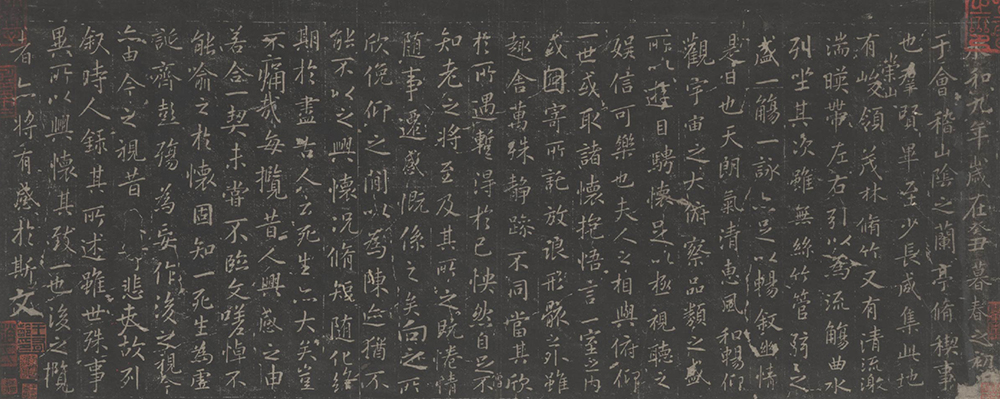 永和九年歲在癸丑暮春之初
于會稽山陰之蘭亭脩稧事
也羣賢畢至少長咸集此地
有崇山峻領茂林脩竹又有清流激
湍暎帶左右引以為流觴曲水
列坐其次雖無絲竹管弦之
盛一觴一詠亦足以暢敘幽情
是日也天朗氣清惠風和暢仰
觀宇宙之大俯察品類之盛
所以遊目騁懷足以極視聽之
娛信可樂也夫人之相與俯仰
一世或取諸懷抱悟言一室之內
或因寄所託放浪形骸之外雖
趣舍萬殊靜躁不同當其欣
於所遇暫得於己怏然自足不
知老之將至及其所之既惓情
隨事遷感慨係之矣向之所
欣俛仰之間以為陳迹猶不
能不以之興懷況脩短隨化終
期於盡古人云死生亦大矣豈
不痛哉每攬昔人興感之由
若合一契未嘗不臨文嗟悼不
能喻之於懷固知一死生為虛
誕齊彭殤為妄作後之視今
亦由今之視昔悲夫故列
敘時人錄其所述雖世殊事
異所以興懷其致一也後之攬
者亦將有感於斯文